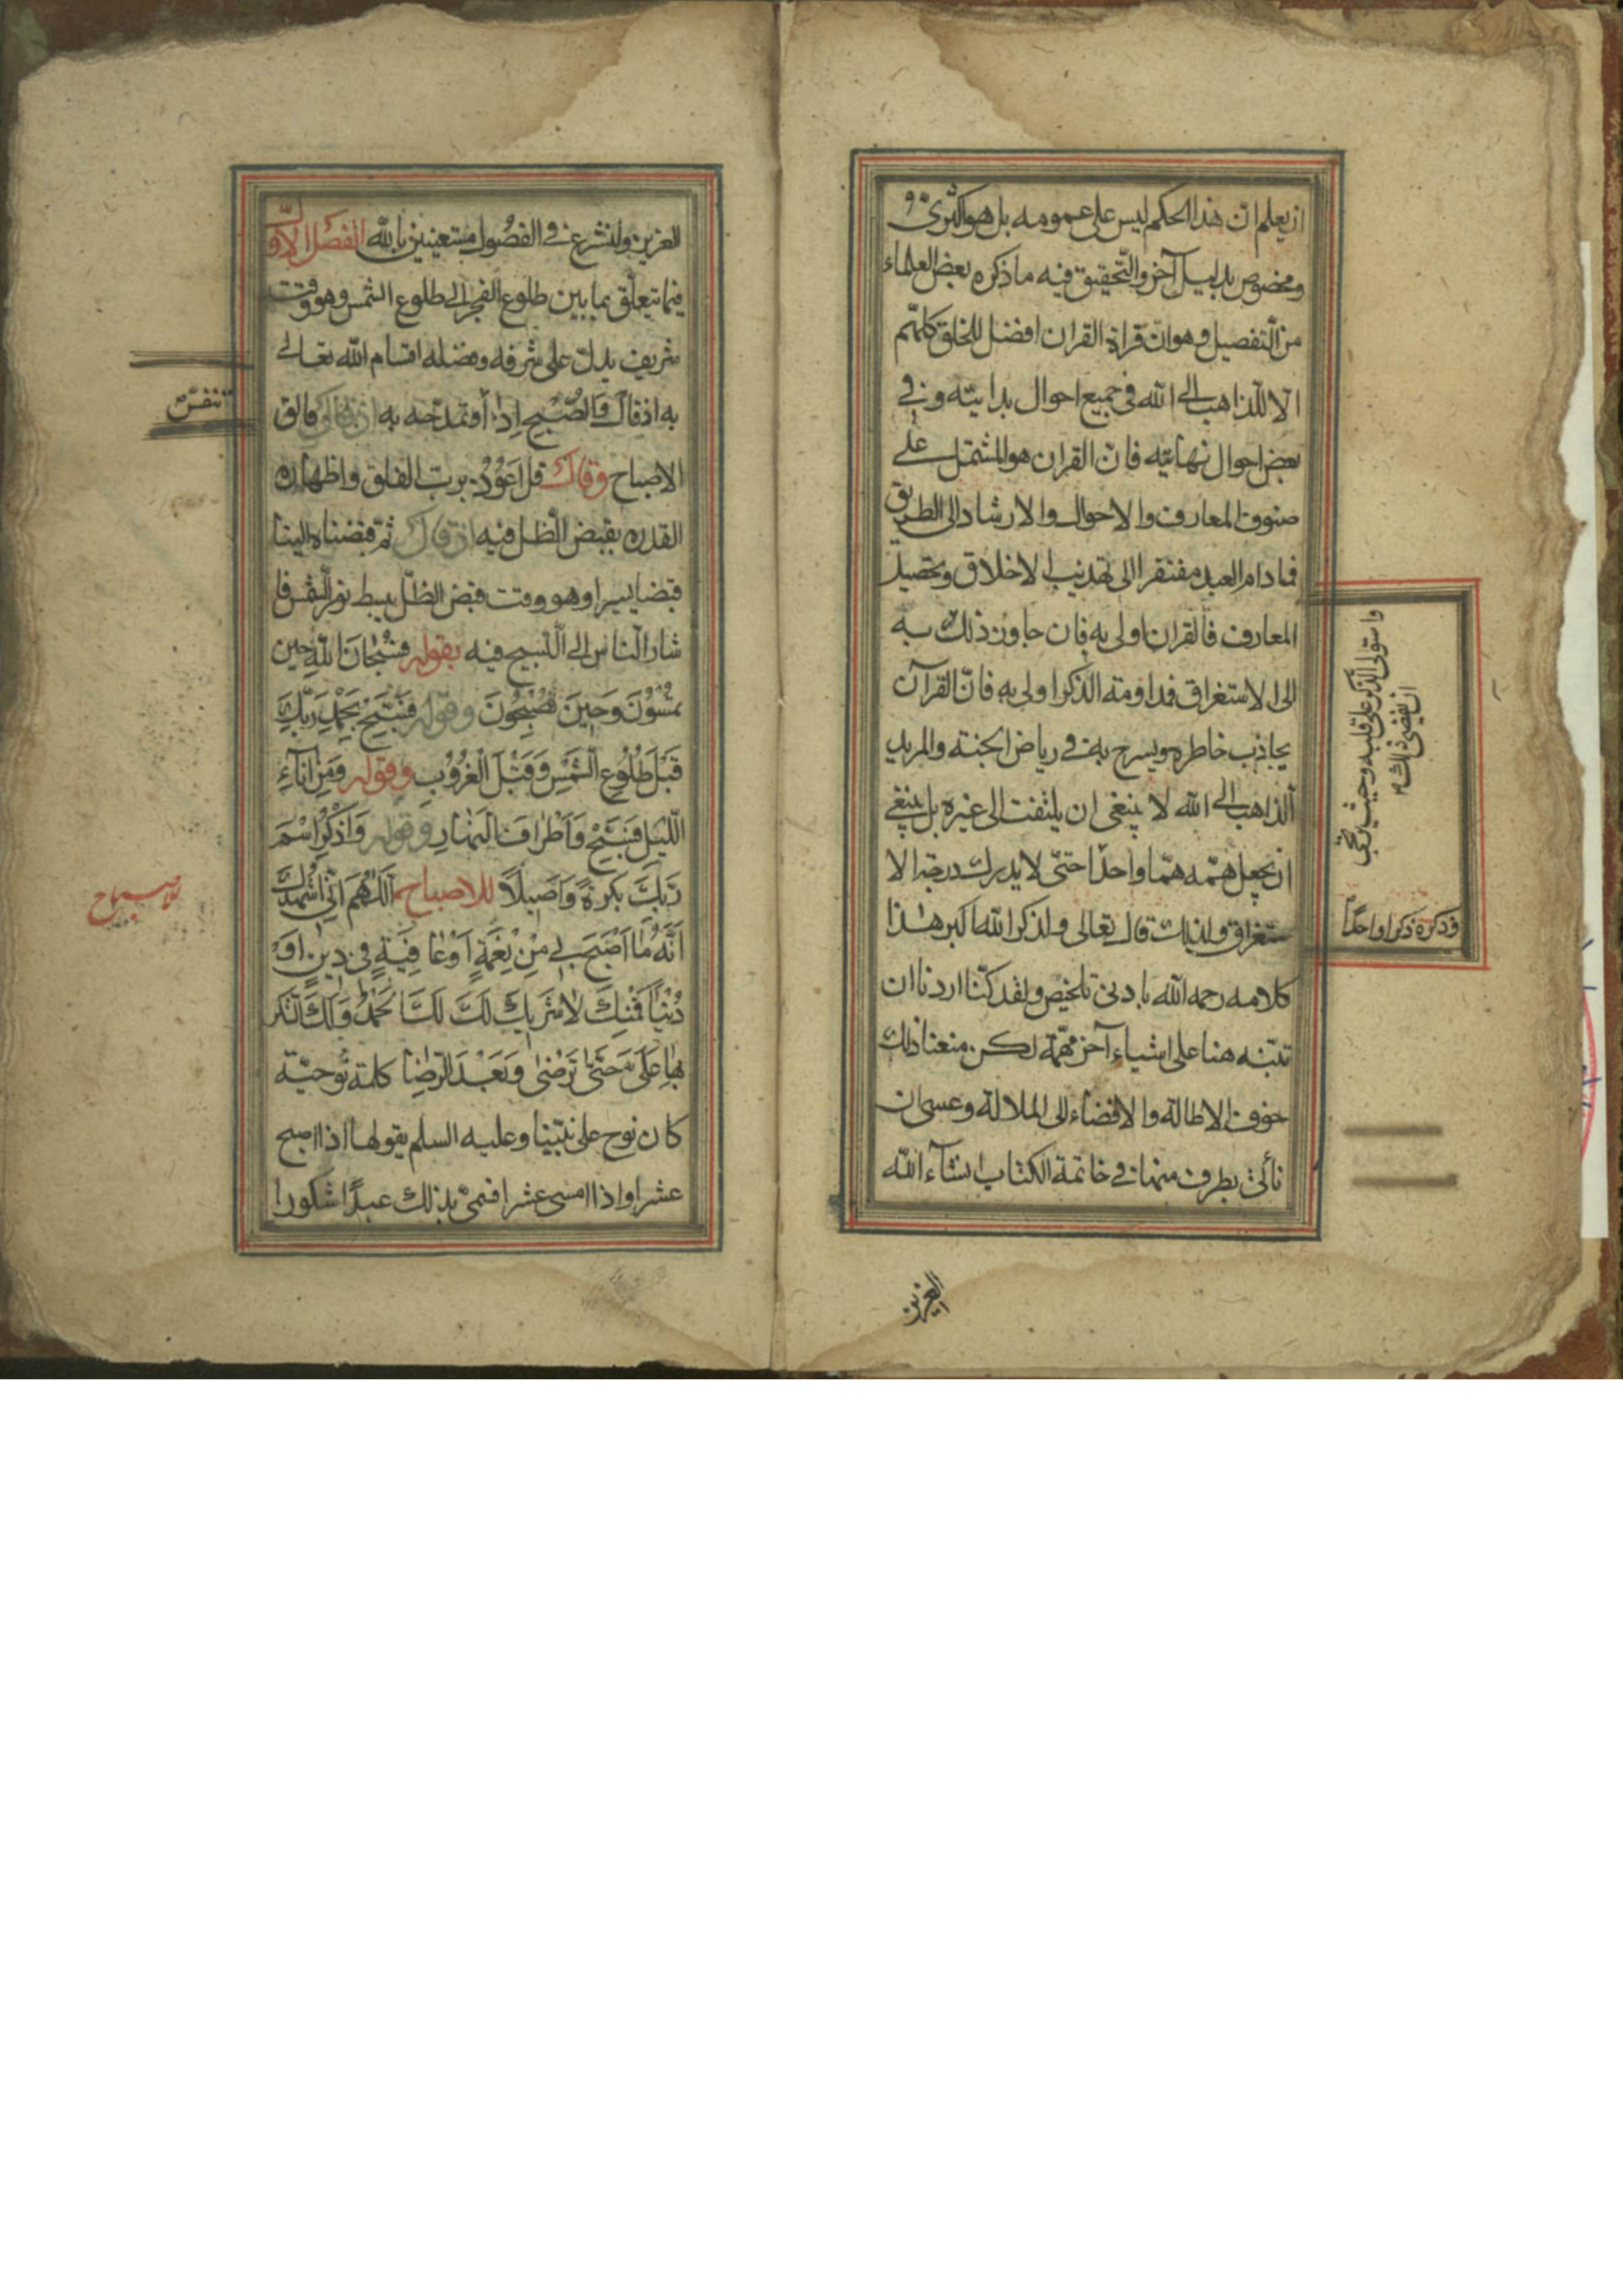 ان يعلم ان هذا الحكم ليس على عمومه بل هو اكثرى و
ومخصوص بدليل آخر والتحقيق فيه ما ذكره بعض العلماء
من التفصيل وهو ان قراة القران افضل للخلق كلهم
الا للذاهب الى الله فى جميع احوال بدايته وفى
بعض احوال نهايته فان القران هو المشتمل على
صنوف المعارف والاحوال والارشاد الى الطريق
فما دام العبد مفتقرا الى تهذيب الاخلاق وتحصيل
المعارف فالقران اولى به فان جاوز ذلك
واستولى الذكر على قلبه وحيث يرتجى
ان يفضى ذلك
به
الى الاستغراق فمداومة الذكر اولى به فان القرآن
يجاذب خاطره ويسرح به فى رياض الجنة والمريد
الذاهب الى الله لا ينبغى ان يلتفت الى غيره بل ينبغى
ان يجعل همه هما واحدا حتى لا يدرك درجة الا
وذكره ذكرا واحدا
ستغراق ولذلك قال تعالى ولذكر الله اكبر هذا
كلامه رحمه الله بادنى تلخيص ولقد كنا اردنا ان
ننبه هنا على اشياء آخر مهمة لكن منعنا ذلك
خوف الاطالة والافضاء الى الملالة وعسى ان
نأتى بطرف منها فى خاتمة الكتاب انشآء الله
العزيز
العزيز ولنشرع فى الفصول مستعينين بالله الفصل الاول
فيما يتعلق بما بين طلوع الفجر الى طلوع الشمس وهو وقت
شريف يدل على شرفه وفضله اقسام الله تعالى
به اذ قال والصبح اذا وتمدحه به اذ قال فالق
تنفس
الاصباح وقال قل اعوذ برب الفلق واظهاره
القدرة بقبض الظل فيه اذ قال ثم قبضناه الينا
قبضا يسيرا وهو وقت قبض الظل ببسط نور الشمس فا
شار الناس الى التسبيح فيه بقوله فسبحان الله حين
تمسون وحين تصبحون وقوله فسبح بحمد ربك
قبل طلوع الشمس وقبل الغروب وقوله ومن اناء
الليل فسبح واطراف النهار وقوله واذكر اسم
ربك بكرة واصيلا للاصباح اللهم انى اشهدك
للاصباح
انه ما اصبح بى من نعمة او عافية فى دين او
دنيا فمنك لا شريك لك لك الحمد ولك الشكر
بها على حتى ترضى وبعد الرضا كلمة نوحية
كان نوح على نبينا وعليه السلم يقولها اذا اصبح
عشرا واذا امسى عشرا فسمى بذلك عبدا شكورا